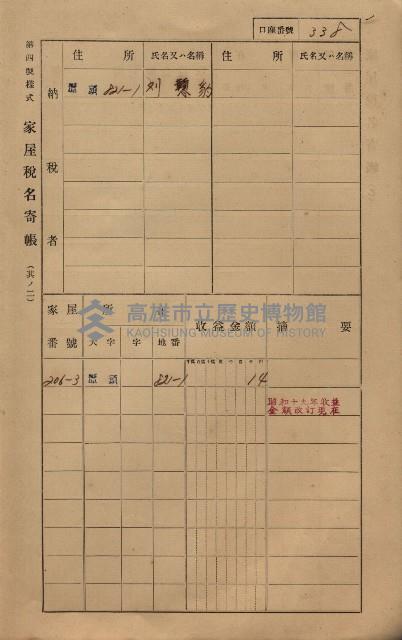 口座番號 338
第四號樣式 家屋稅名寄帳 (其ノ二)
納稅者
住所 氏名又ハ名稱 住所 氏名又ハ名稱
塩埕 821-1 刘
高雄市立歷史博物館
KAOHSIUNG MUSEUM OF HISTORY
家屋番號 所在 收益金額 摘要
大字 字 地番
206-3 塩埕 821-1 14
昭和十九年收益
金額改訂現在